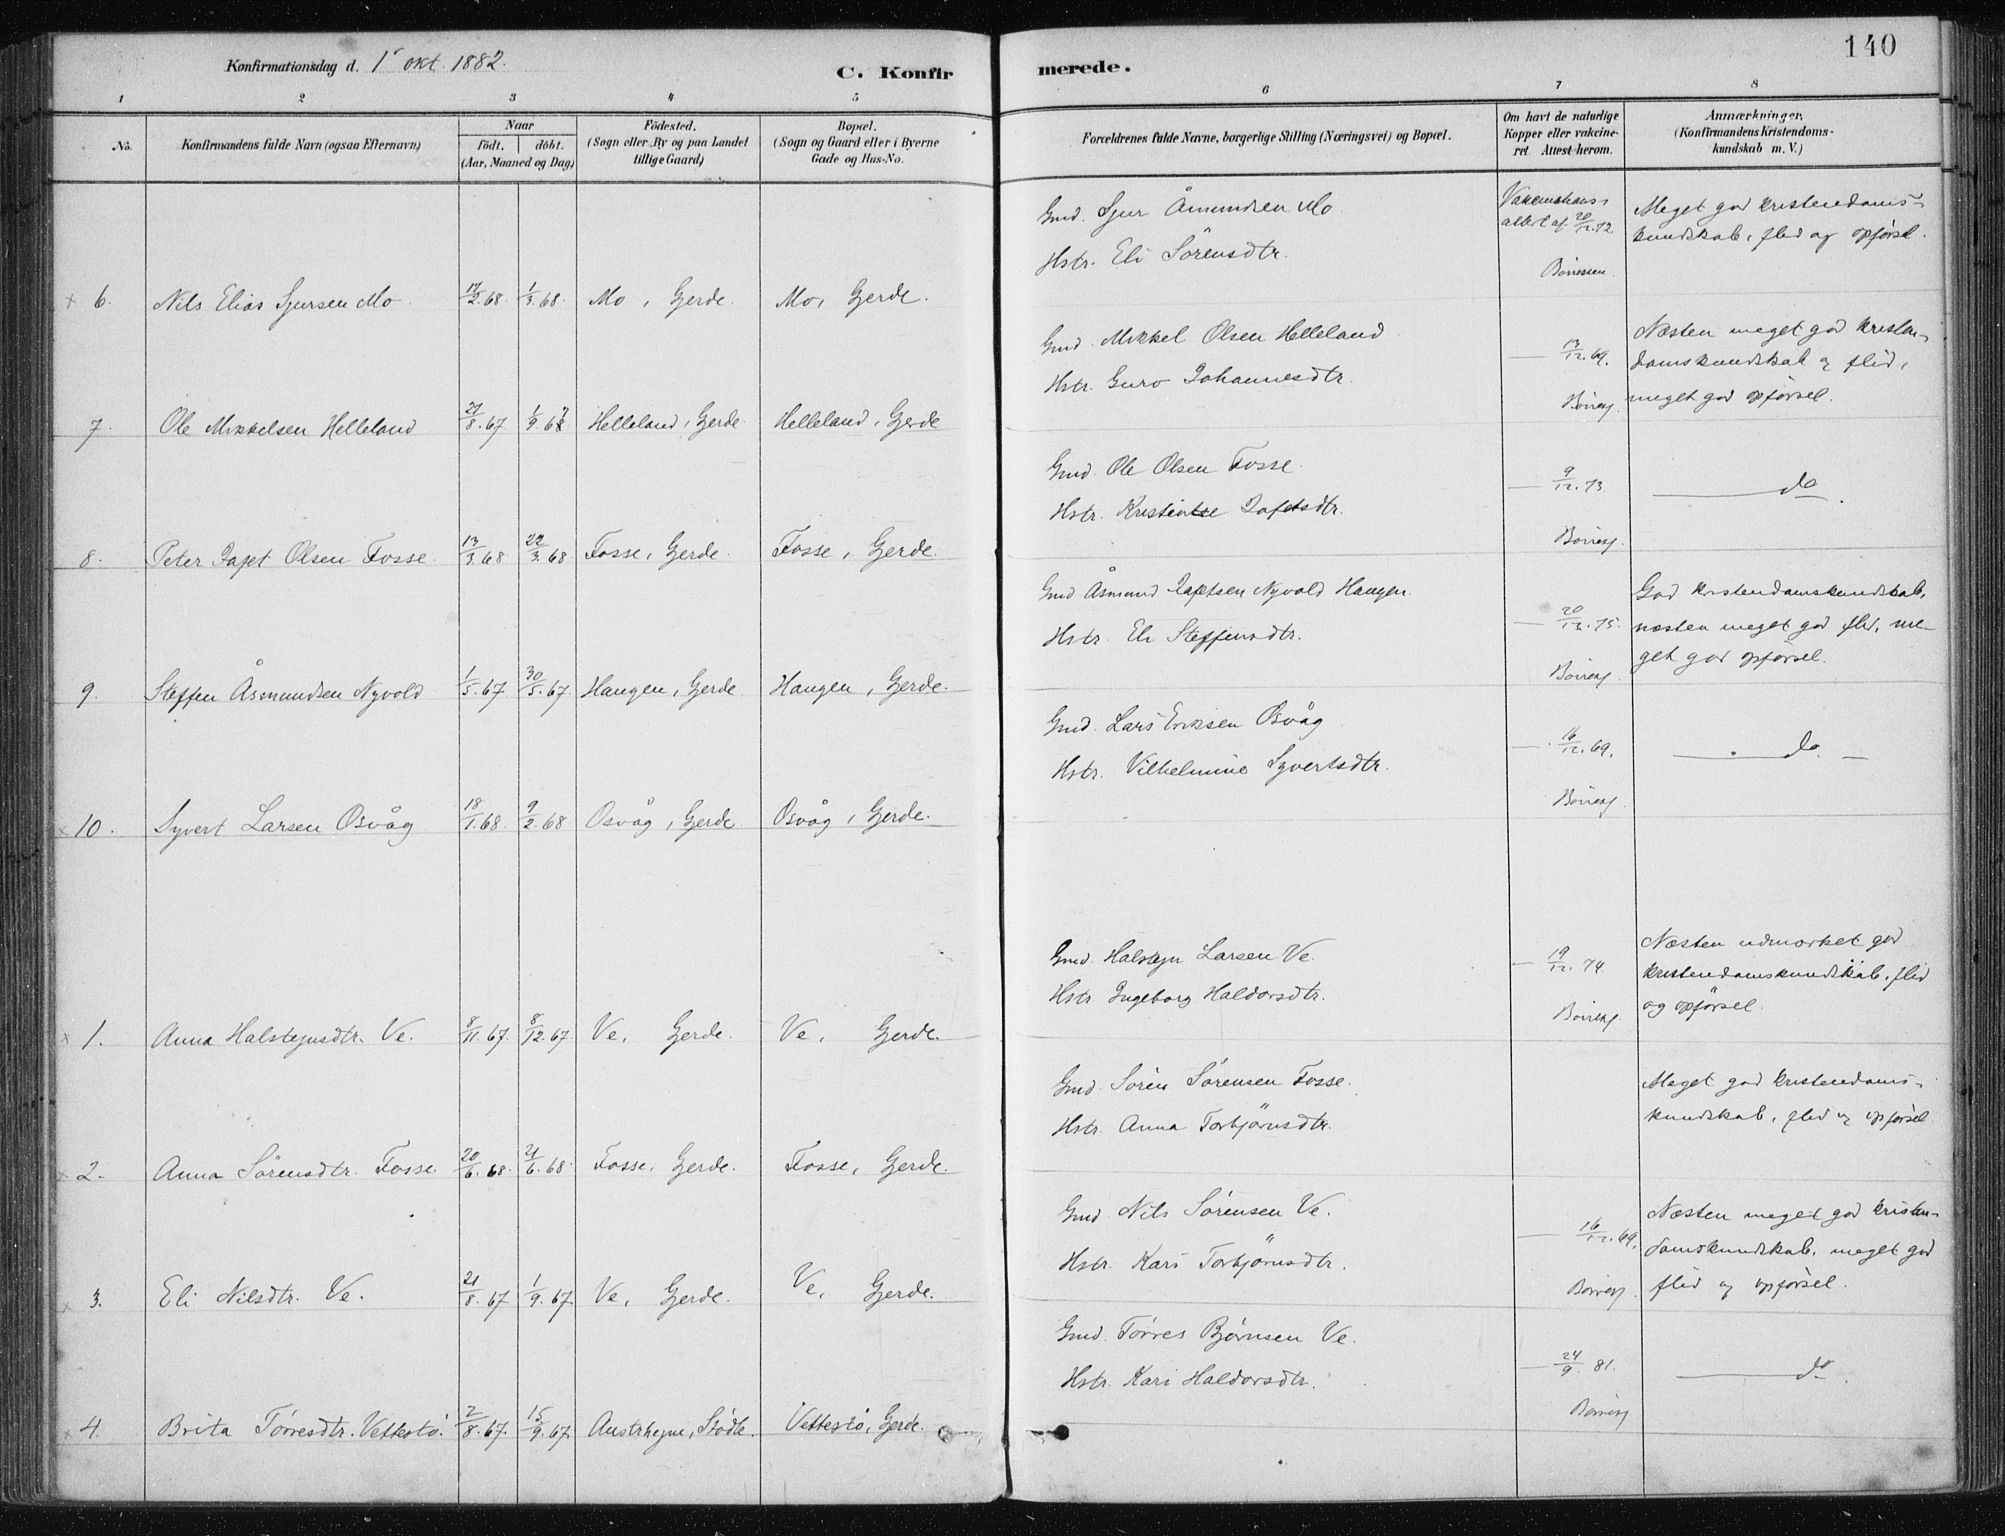 Konfirmationsdag d. 1ᵗ okt. 1882.
C. Konfirmerede.
140
1 2 3 4 5 6 7 8
No.
Konfirmandens fulde Navn (ogsaa Efternavn)
Naar
födt. döbt.
(Aar, Maaned og Dag)
Födested.
(Sogn eller By og paa Landet
tillige Gaard)
Bopæl.
(Sogn og Gaard eller i Byerne
Gade og Hus-No.
Forældrenes fulde Navne, borgerlige Stilling (Næringsvei) og Bopæl.
Om havt de naturlige
Kopper eller vakcine-
ret. Attest herom.
Anmærkninger,
(Konfirmandens Kristendoms-
kundskab m. V.)
× 6. Nils Elias Sjursen Mo 17/2.68. 1/3.68. Mo, Gerde. Mo, Gerde.
Gmd. Sjur Åmundsen Mo
Hstr. Eli Sörensdtr.
Vakcinations-
attest af 20/12.72
Börresen.
Meget god kristendoms-
kundskab, flid og opförsel.
7. Ole Mikkelsen Helleland 21/8.67 1/9.67 Helleland, Gerde Helleland, Gerde
Gmd. Mikkel Olsen Helleland
Hstr. Guro Johannesdtr.
— 13/12.69.
Börres.
Næsten meget god kristen-
domskundskab og flid,
meget god opförsel.
8. Peter Japet Olsen Fosse. 13/3.68 22/3.68 Fosse, Gerde. Fosse, Gerde.
Gmd. Ole Olsen Fosse.
Hstr. Kristine Jafetsdtr.
— 9/12.73.
Börres.
— do —.
9. Steffen Åsmundsen Nyvold 1/5.67 30/5.67 Haugen, Gerde Haugen, Gerde.
Gmd Åsmund Japtsen Nyvold Haugen.
Hstr. Eli Steffensdtr.
— 20/12.75.
Börres.
God kristendomskundskab,
næsten meget god flid, me-
get god opförsel.
× 10. Syvert Larsen Osvåg 18/1.68. 9/2.68 Osvåg, Gerde Osvåg, Gerde.
Gmd. Lars Eriksen Osvåg
Hstr. Vilhelmine Syvertsdtr.
— 16/12.69.
Börres.
— do —
× 1. Anna Halstejnsdtr. Ve. 8/11.67. 8/12.67. Ve, Gerde. Ve, Gerde.
Gmd. Halstejn Larsen Ve.
Hstr. Ingeborg Haldorsdtr.
— 19/12.74.
Börres.
Næsten udmærket god
kristendomskundskab, flid
og opförsel.
× 2. Anna Sörensdtr. Fosse. 20/6.68. 21/6.68. Fosse, Gerde. Fosse, Gerde.
Gmd. Sören Sörensen Fosse.
Hstr. Anna Torbjörnsdtr.
Meget god kristendoms-
kundskab, flid og opförsel.
× 3. Eli Nilsdtr. Ve. 21/8.67 1/9.67. Ve, Gerde. Ve, Gerde.
Gmd. Nils Sörensen Ve.
Hstr. Kari Torbjörnsdtr.
— 16/12.69.
Börres.
Næsten meget god kristen-
domskundskab, meget god
flid og opförsel.
× 4. Brita Törresdtr. Vettestö. 2/8.67. 15/9.67. Austrhejm, Stödle. Vettestö, Gerde.
Gmd. Törres Björnsen Ve.
Hstr. Kari Haldorsdtr.
— 24/9 81.
Börres.
— do.